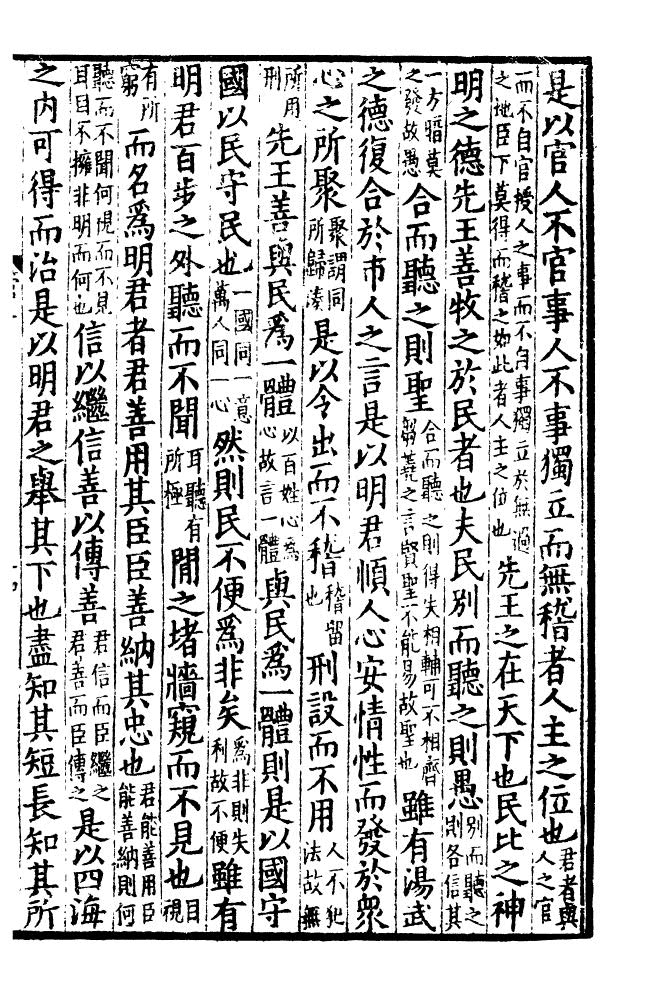 是以官人不官事人不事獨立而無稽者人主之位也君者與人之官
而不自官授人之事而不自事獨立於無過之地臣下莫得而稽之如此者人主之位也先王之在天下也民比之神
明之德先王善牧之於民者也夫民別而聽之則愚別而聽之則各信其
一方暗莫之發故愚合而聽之則聖合而聽之則得失相輔可不相齊芻蕘之言賢聖不能易故聖也雖有湯武
之德復合於市人之言是以明君順人心安情性而發於衆
心之所聚聚謂同所歸湊是以令出而不稽稽留也刑設而不用人不犯法故無
所用刑先王善與民爲一體以百姓心爲心故言一體與民爲一體則是以國守
國以民守民也一國同一意萬人同一心然則民不便爲非矣爲非則失利故不便雖有
明君百步之外聽而不聞耳聽有所極閒之堵牆窺而不見也目視
有所窮而名爲明君者君善用其臣臣善納其忠也君能善用臣能善納則何
聽而不聞何視而不見耳目不擁非明而何也信以繼信善以傳善君信而臣繼之君善而臣傳之是以四海
之内可得而治是以明君之舉其下也盡知其短長知其所